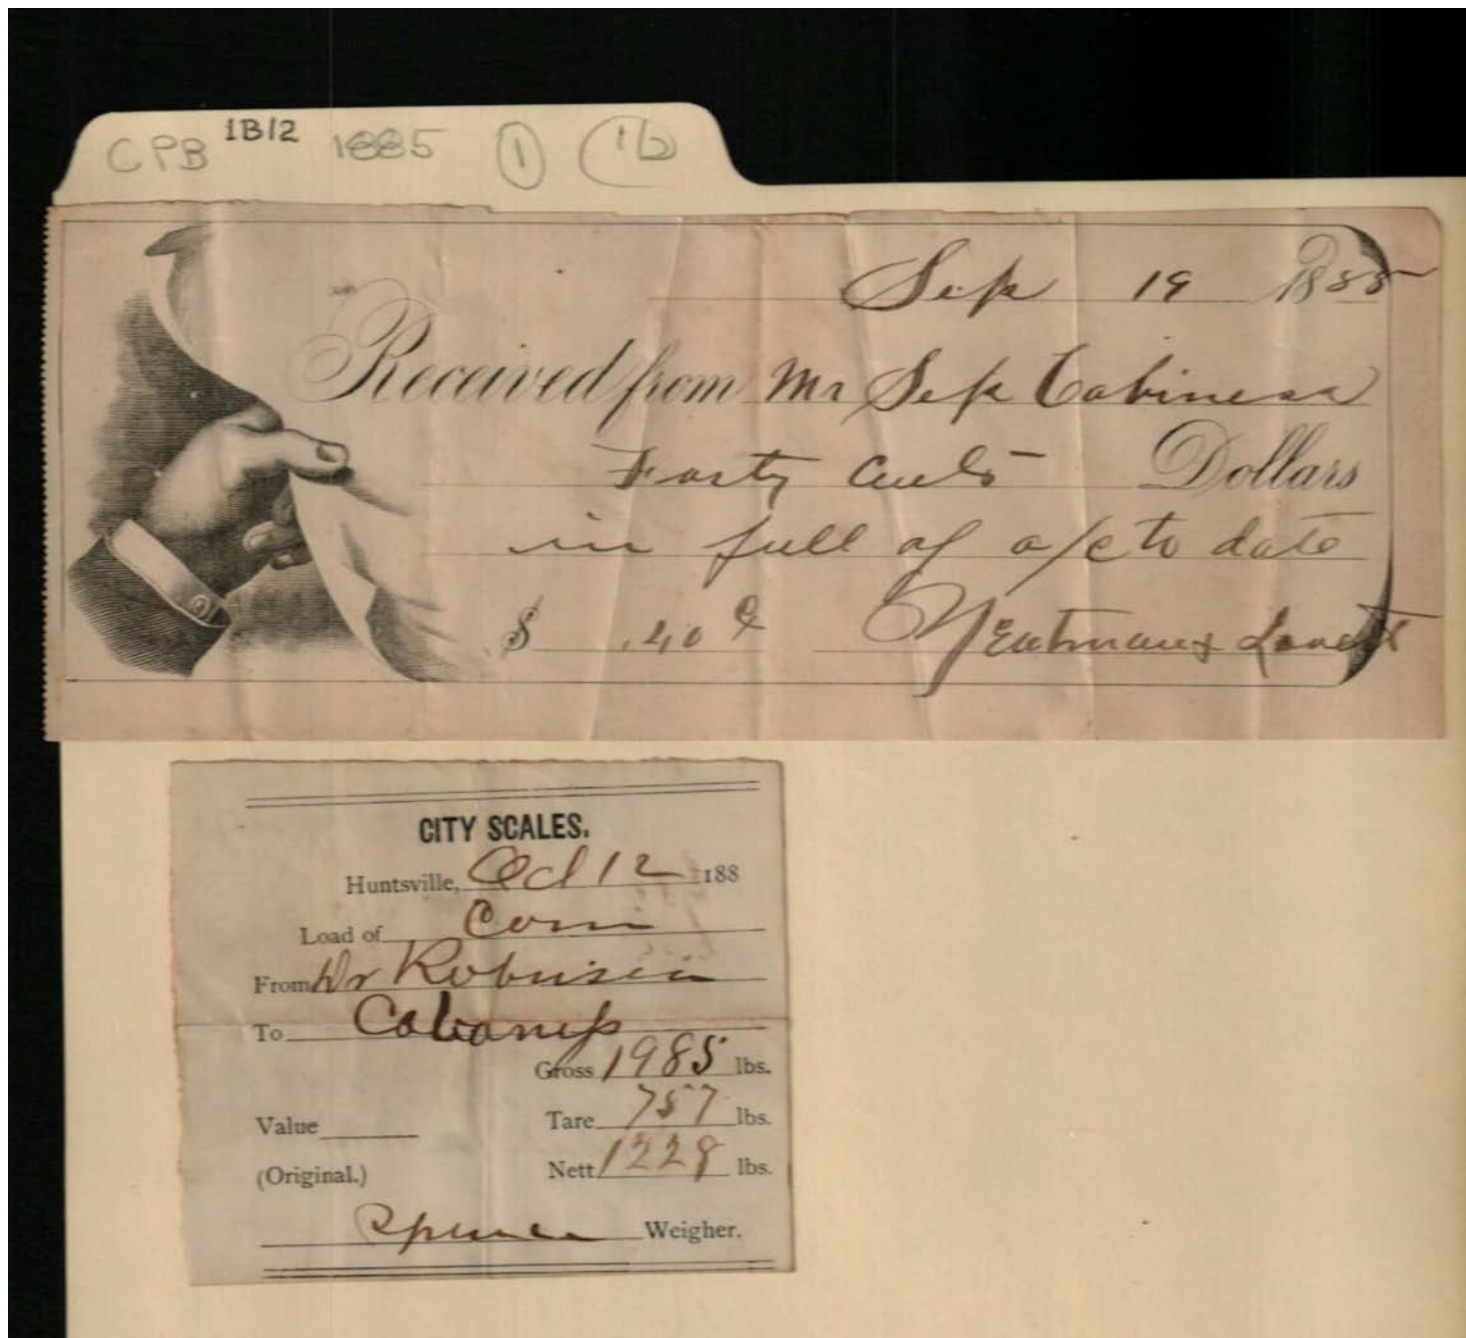 CPB 1B12 1885 1 1b
Sep 19 1885
Received from Mr Sep Cabiness
Forty Cents Dollars
in full of a/c to date
$ .40 ¢ Yeatman & Lovett
CITY SCALES.
Huntsville, Oct 12 188
Load of Corn
From Dr Robinson
To Cabaniss
Gross 1985 lbs.
Value Tare 757 lbs.
(Original.) Nett 1228 lbs.
Spence Weigher.